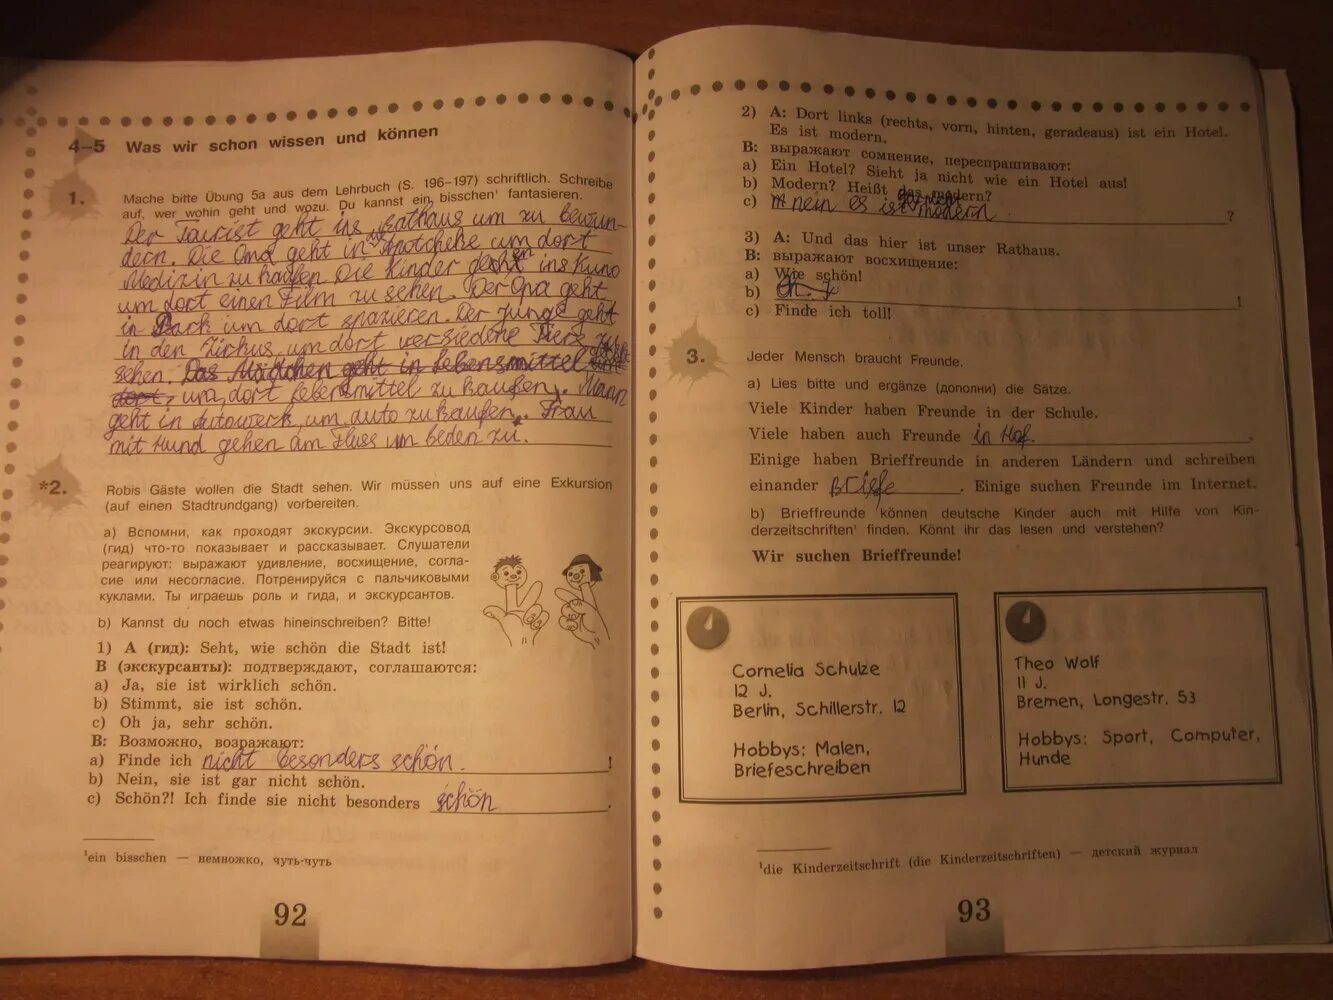 4–5 Was wir schon wissen und können
1.
Mache bitte Übung 5a aus dem Lehrbuch (S. 196–197) schriftlich. Schreibe
auf, wer wohin geht und wozu. Du kannst ein bisschen¹ fantasieren.
Der Tourist geht ins Rathaus um zu bewun-
dern. Die Oma geht in Apotchehe um dort
Medizin zu kaufen. Die Kinder gehen ins Kino
um dort einen Film zu sehen. Der Opa geht
in Park um dort spazieren. Der Junge geht
in den Zirkus, um dort versiedene Tiere zu
sehen. Das Mädchen geht in Lebensmittel
dort, um dort Lebensmittel zu kaufen. Mann
geht in Autowerk, um auto zu kaufen. Frau
mit Hund gehen am Fluss um beden zu.
*2.
Robis Gäste wollen die Stadt sehen. Wir müssen uns auf eine Exkursion
(auf einen Stadtrundgang) vorbereiten.
a) Вспомни, как проходят экскурсии. Экскурсовод
(гид) что-то показывает и рассказывает. Слушатели
реагируют: выражают удивление, восхищение, согла-
сие или несогласие. Потренируйся с пальчиковыми
куклами. Ты играешь роль и гида, и экскурсантов.
b) Kannst du noch etwas hineinschreiben? Bitte!
1) A (гид): Seht, wie schön die Stadt ist!
B (экскурсанты): подтверждают, соглашаются:
a) Ja, sie ist wirklich schön.
b) Stimmt, sie ist schön.
c) Oh ja, sehr schön.
B: Возможно, возражают:
a) Finde ich nicht besonders schön. !
b) Nein, sie ist gar nicht schön.
c) Schön?! Ich finde sie nicht besonders schön .
¹ein bisschen — немножко, чуть-чуть
92
2) A: Dort links (rechts, vorn, hinten, geradeaus) ist ein Hotel.
Es ist modern.
B: выражают сомнение, переспрашивают:
a) Ein Hotel? Sieht ja nicht wie ein Hotel aus!
b) Modern? Heißt das modern?
c) nein es ist modern ?
3) A: Und das hier ist unser Rathaus.
B: выражают восхищение:
a) Wie schön!
b) !
c) Finde ich toll!
3.
Jeder Mensch braucht Freunde.
a) Lies bitte und ergänze (дополни) die Sätze.
Viele Kinder haben Freunde in der Schule.
Viele haben auch Freunde in Hof.
Einige haben Brieffreunde in anderen Ländern und schreiben
einander Briefe . Einige suchen Freunde im Internet.
b) Brieffreunde können deutsche Kinder auch mit Hilfe von Kin-
derzeitschriften¹ finden. Könnt ihr das lesen und verstehen?
Wir suchen Brieffreunde!
Cornelia Schulze
12 J.
Berlin, Schillerstr. 12
Hobbys: Malen,
Briefeschreiben
Theo Wolf
11 J.
Bremen, Longestr. 53
Hobbys: Sport, Computer,
Hunde
¹die Kinderzeitschrift (die Kinderzeitschriften) — детский журнал
93